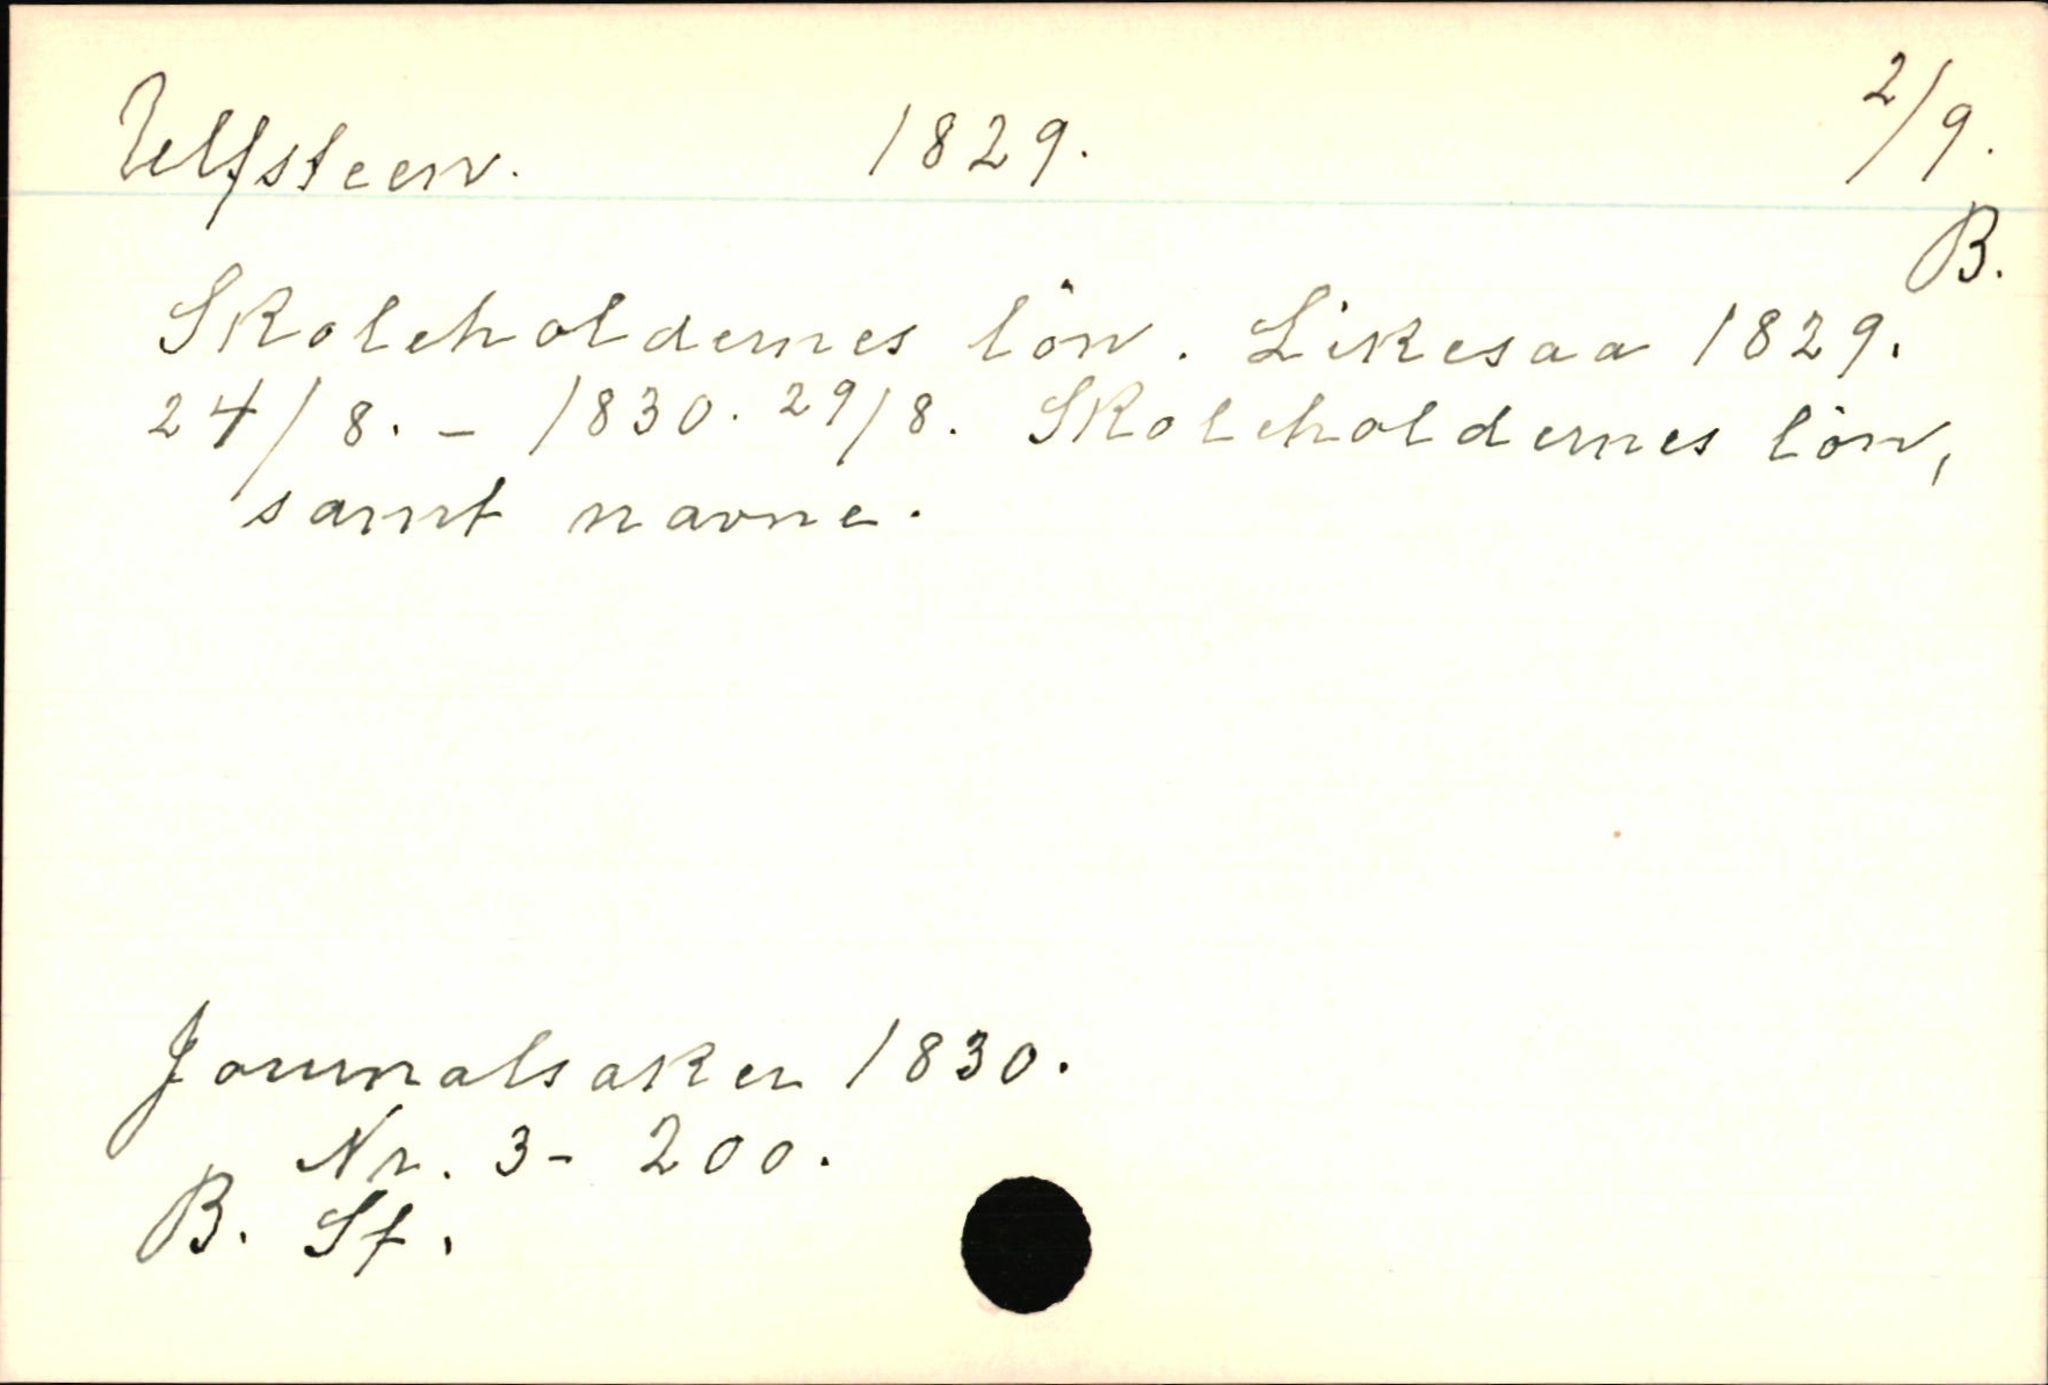 Ulfsteen. 1829. 2/9.
B.
Skoleholdernes lön. Likesaa 1829.
24/8. - 1830. 29/8. Skoleholdernes lön,
samt navne.
Journalsaker 1830.
Nr. 3 - 200.
B. Sf.